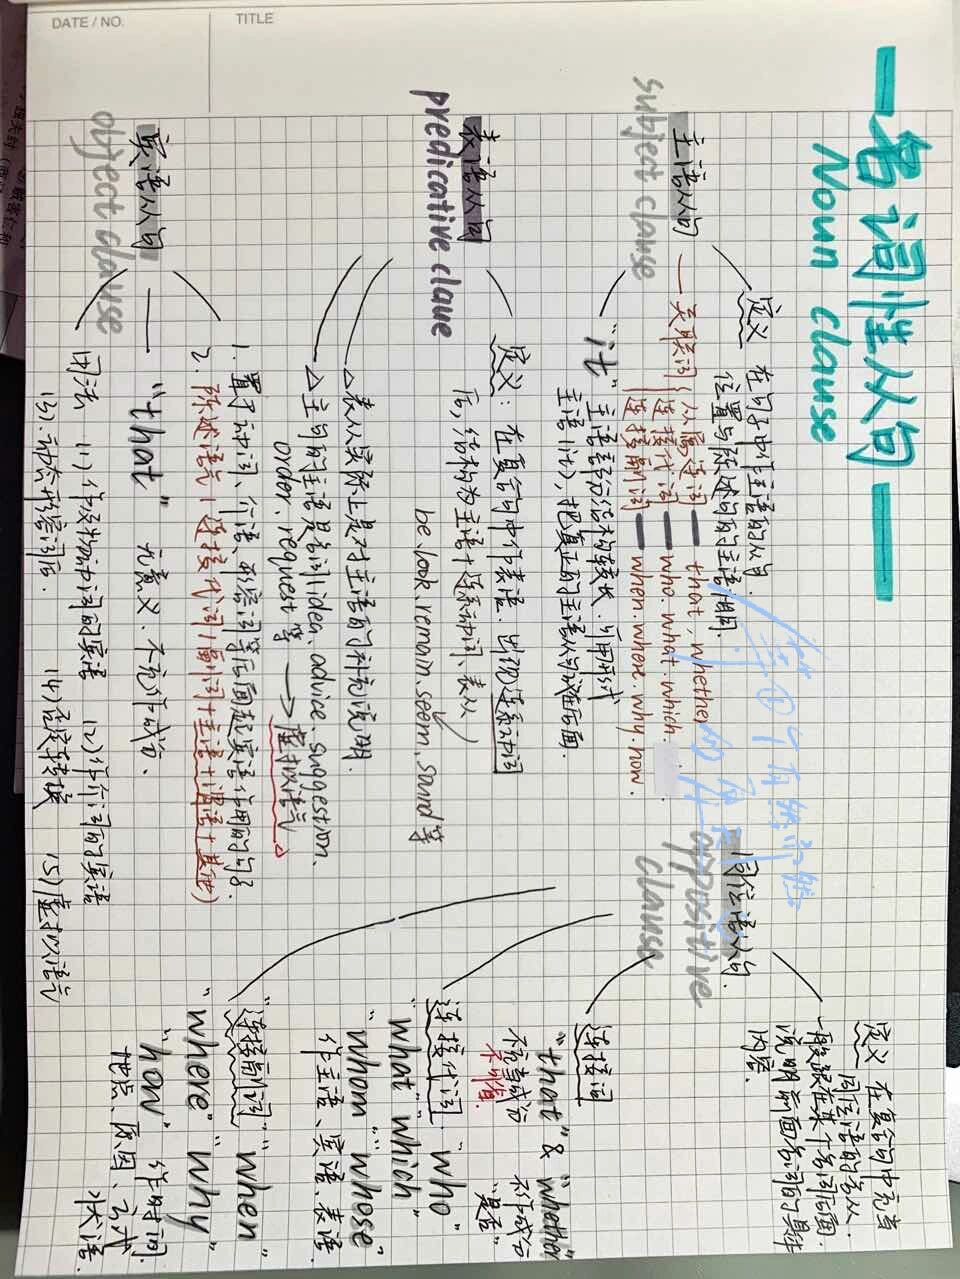 DATE / NO.
TITLE
名词性从句
Noun clause
主语从句
subject clause
定义 在句子中作主语的从句.
位置与陈述句的主语相同.
关联词
从属连词 that, whether
连接代词 who. what. which.
连接副词 when. where. why. how.
"it"
表语从句
predicative claue
定义: 在复合句中作表语. 出现连系动词
后, 结构为主语+系动词、表从
be. look. remain. seem. sound 等
△表从实际上是对主语的补充说明.
△主句的主语是名词 idea. advice. suggestion.
order. request 等 → 虚拟语气
宾语从句
object clause
1. 置于动词、介词、形容词等后面起宾语作用的句子
2. 陈述语气 (连接代词/副词+主语+谓语+其他)
"that" 无意义. 不充作成分.
用法 (1) 作及物动词的宾语 (2) 作介词的宾语
(3). 动态形容词后. (5) 虚拟语气
同位语从句
appositive
clause
定义 在复合句中充当
同位语的名从
一般跟在某个名词后面
说明前面名词的具体
内容.
连接词
"that" & "whether"
不充当成分 不作成分
不可省. "是否"
连接代词. "who"
"what" "which"
"whom" "whose"
作主语、宾语、表语
连接副词 "when"
"where" "why"
"how" 作时间.
地点、原因、方式
状语.